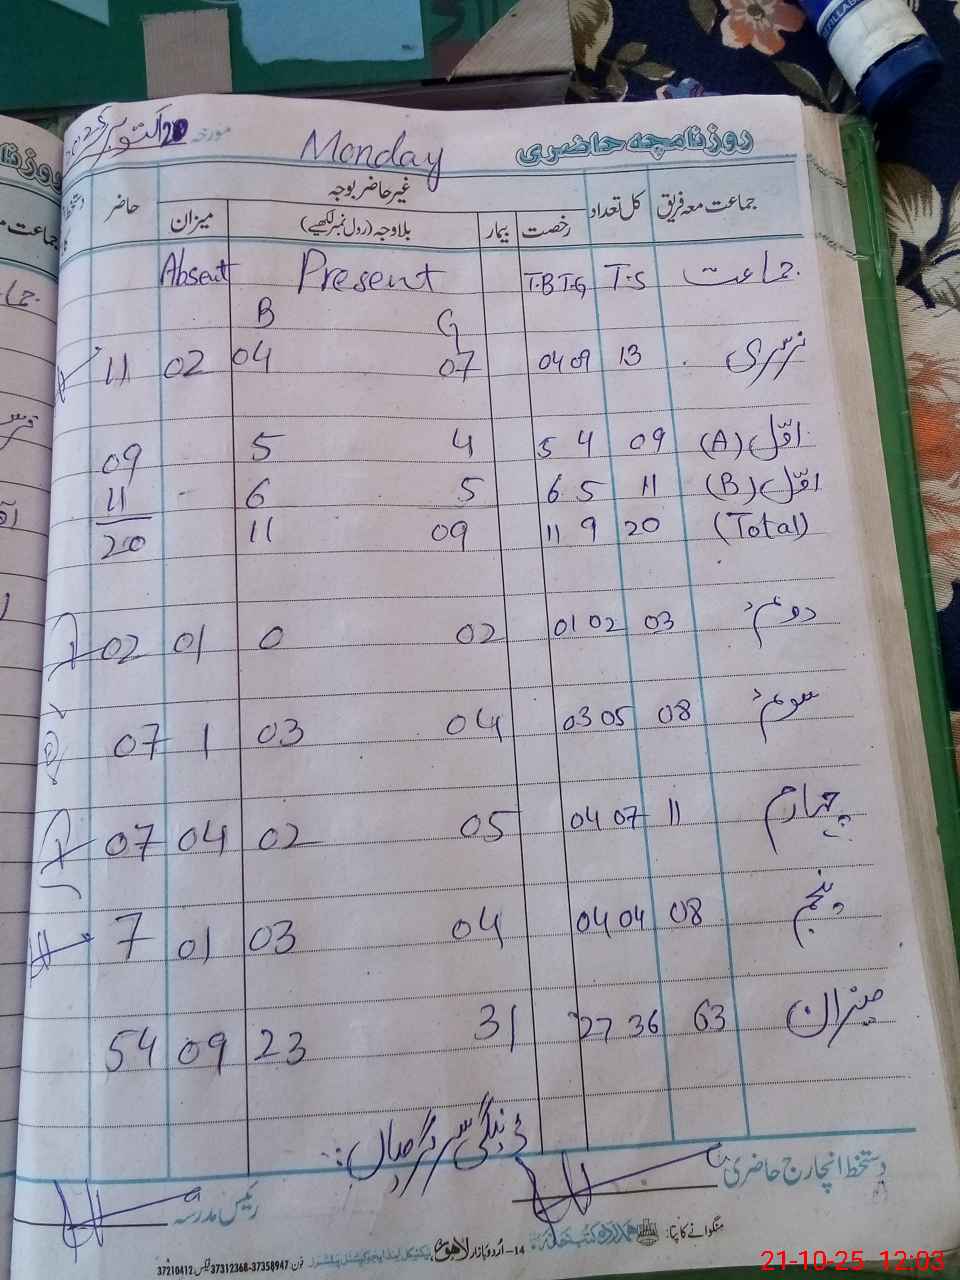 روزنامچہ حاضری Monday مورخہ 20 اکتوبر 2025
جماعت معہ فریق کل تعداد غیر حاضر بوجہ حاضر
رخصت بیمار بلاوجہ (رول نمبر لکھیے) میزان
جماعت T.S T.B T.G Present Absent
G B
نرسری 13 09 04 07 04 02 11
اوّل (A) 09 4 5 4 5 09
اوّل (B) 11 5 6 5 6 - 11
(Total) 20 9 11 09 11 20
دوئم 03 02 01 02 0 01 02
سوئم 08 05 03 04 03 1 07
چہارم 11 07 04 05 02 04 07
پنجم 08 04 04 04 03 01 7
میزان 63 36 27 31 23 09 54
دستخط انچارج حاضری
رئیس مدرسہ
منگوانے کا پتا: ہمدرد کتب خانہ
14-اردو بازار لاہور
فون: 37358947-37312368 فیکس: 37210412
21-10-25 12:03